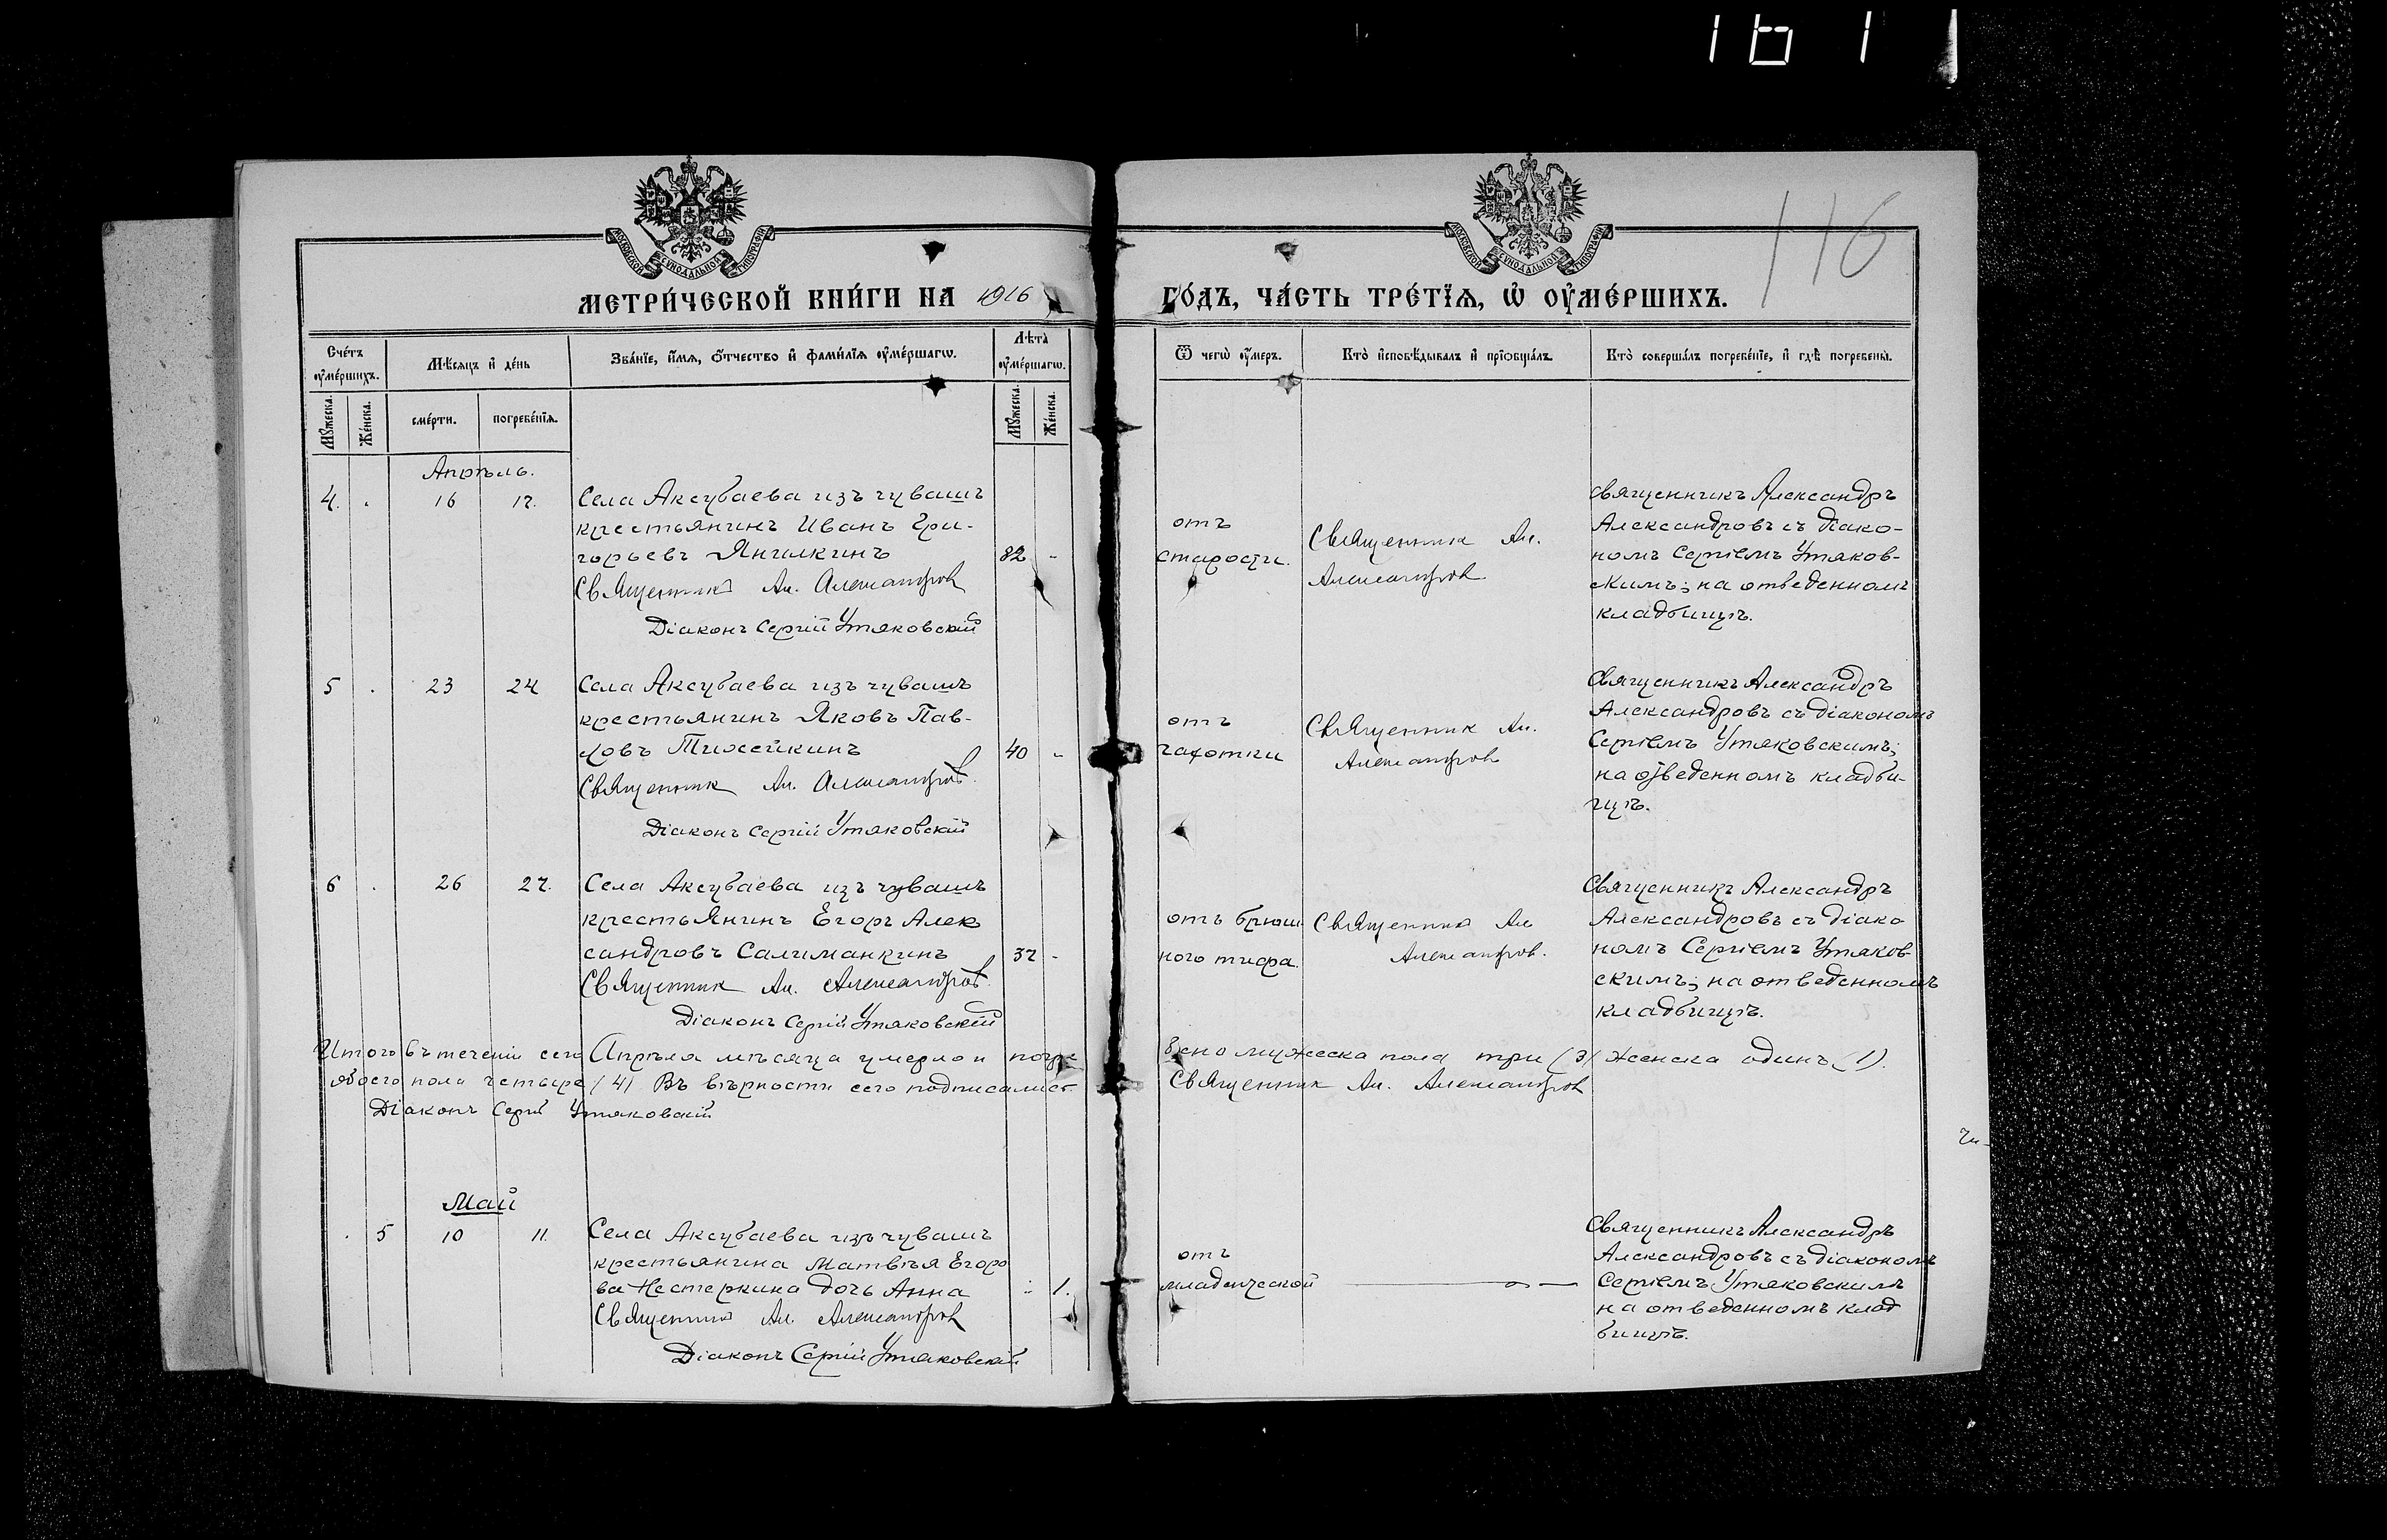 1611
МОСКОВСКОЙ СѴНОДАЛЬНОЙ ТИПОГРАФІИ
МОСКОВСКОЙ СѴНОДАЛЬНОЙ ТИПОГРАФІИ
116
МЕТРИ́ЧЕСКОЙ КНИ́ГИ НА 1916 ГО́ДЪ, ЧА́СТЬ ТРЕ́ТЇѦ, Ѡ҆ ОУ҆МЕ́РШИХЪ.
Сче́тъ оу҆ме́ршихъ.
Мꙋжеска.
Же́нска.
Мѣ́сяцъ и҆ де́нь
сме́рти.
погребе́нїѧ.
Зва́нїе, и҆́мѧ, ѻ҆́тчество и҆ фами́лїѧ оу҆ме́ршагѡ.
Лѣ́та оу҆ме́ршагѡ.
Мꙋжеска.
Же́нска.
Ѿ чегѡ̀ оу҆́меръ.
Кто̀ и҆сповѣ́дывалъ и҆ прїѡбща́лъ.
Кто̀ соверша́лъ погребе́нїе, и҆ гдѣ̀ погребены̀.
Апрѣль.
4. . 16 17.
Села Аксубаева изъ чувашъ
крестьянинъ Иванъ Гри-
горьевъ Янилкинъ
82 -
Священникъ Ал. Александров
Діаконъ Сергій Утяковскій
отъ
старости.
Священник Ал.
Александров.
Священникъ Александръ
Александровъ съ діако-
номъ Сергіемъ Утяков-
скимъ; на отведенномъ
кладбищѣ.
5 . 23 24
Села Аксубаева изъ чувашъ
крестьянинъ Яковъ Пав-
ловъ Тихейкинъ
40 -
Священник Ал. Александров.
Діаконъ Сергій Утяковскій
отъ
чахотки
Священник Ал.
Александров
Священникъ Александръ
Александровъ съ діакономъ
Сергіемъ Утяковскимъ;
на отведенномъ кладби-
щѣ.
6 . 26 27.
Села Аксубаева изъ чувашъ
крестьянинъ Егоръ Алек
сандровъ Салиманкинъ
37 -
Священник Ал. Александров.
Діаконъ Сергій Утяковскій
отъ брюш
ного тифа.
Священник Ал
Александров.
Священникъ Александръ
Александровъ съ діако
номъ Сергіемъ Утяков
скимъ; на отведенномъ
кладбищѣ.
Итого въ теченіи сего Апрѣля мѣсяца умерло и погре бено мужеска пола три (3) женска одинъ (1).
обоего пола четыре (4) Въ вѣрности сего подписались Священник Ал. Александров
Діаконъ Сергій Утяковскій
Май
. 5 10 11.
Села Аксубаева изъ чувашъ
крестьянина Матвѣя Егоро
ва Нестеркина дочь Анна
- 1.
Священник Ал. Александров
Діаконъ Сергій Утяковскій
отъ
младенческой
Священникъ Александръ
Александровъ съ діакономъ
Сергіемъ Утяковскимъ
на отведенномъ клад
бищѣ.